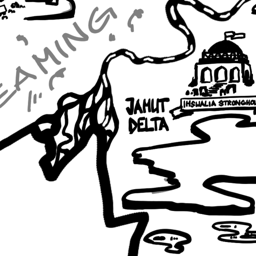 EAMING
JAMUT
DELTA
IHSUALIA STRONGHO